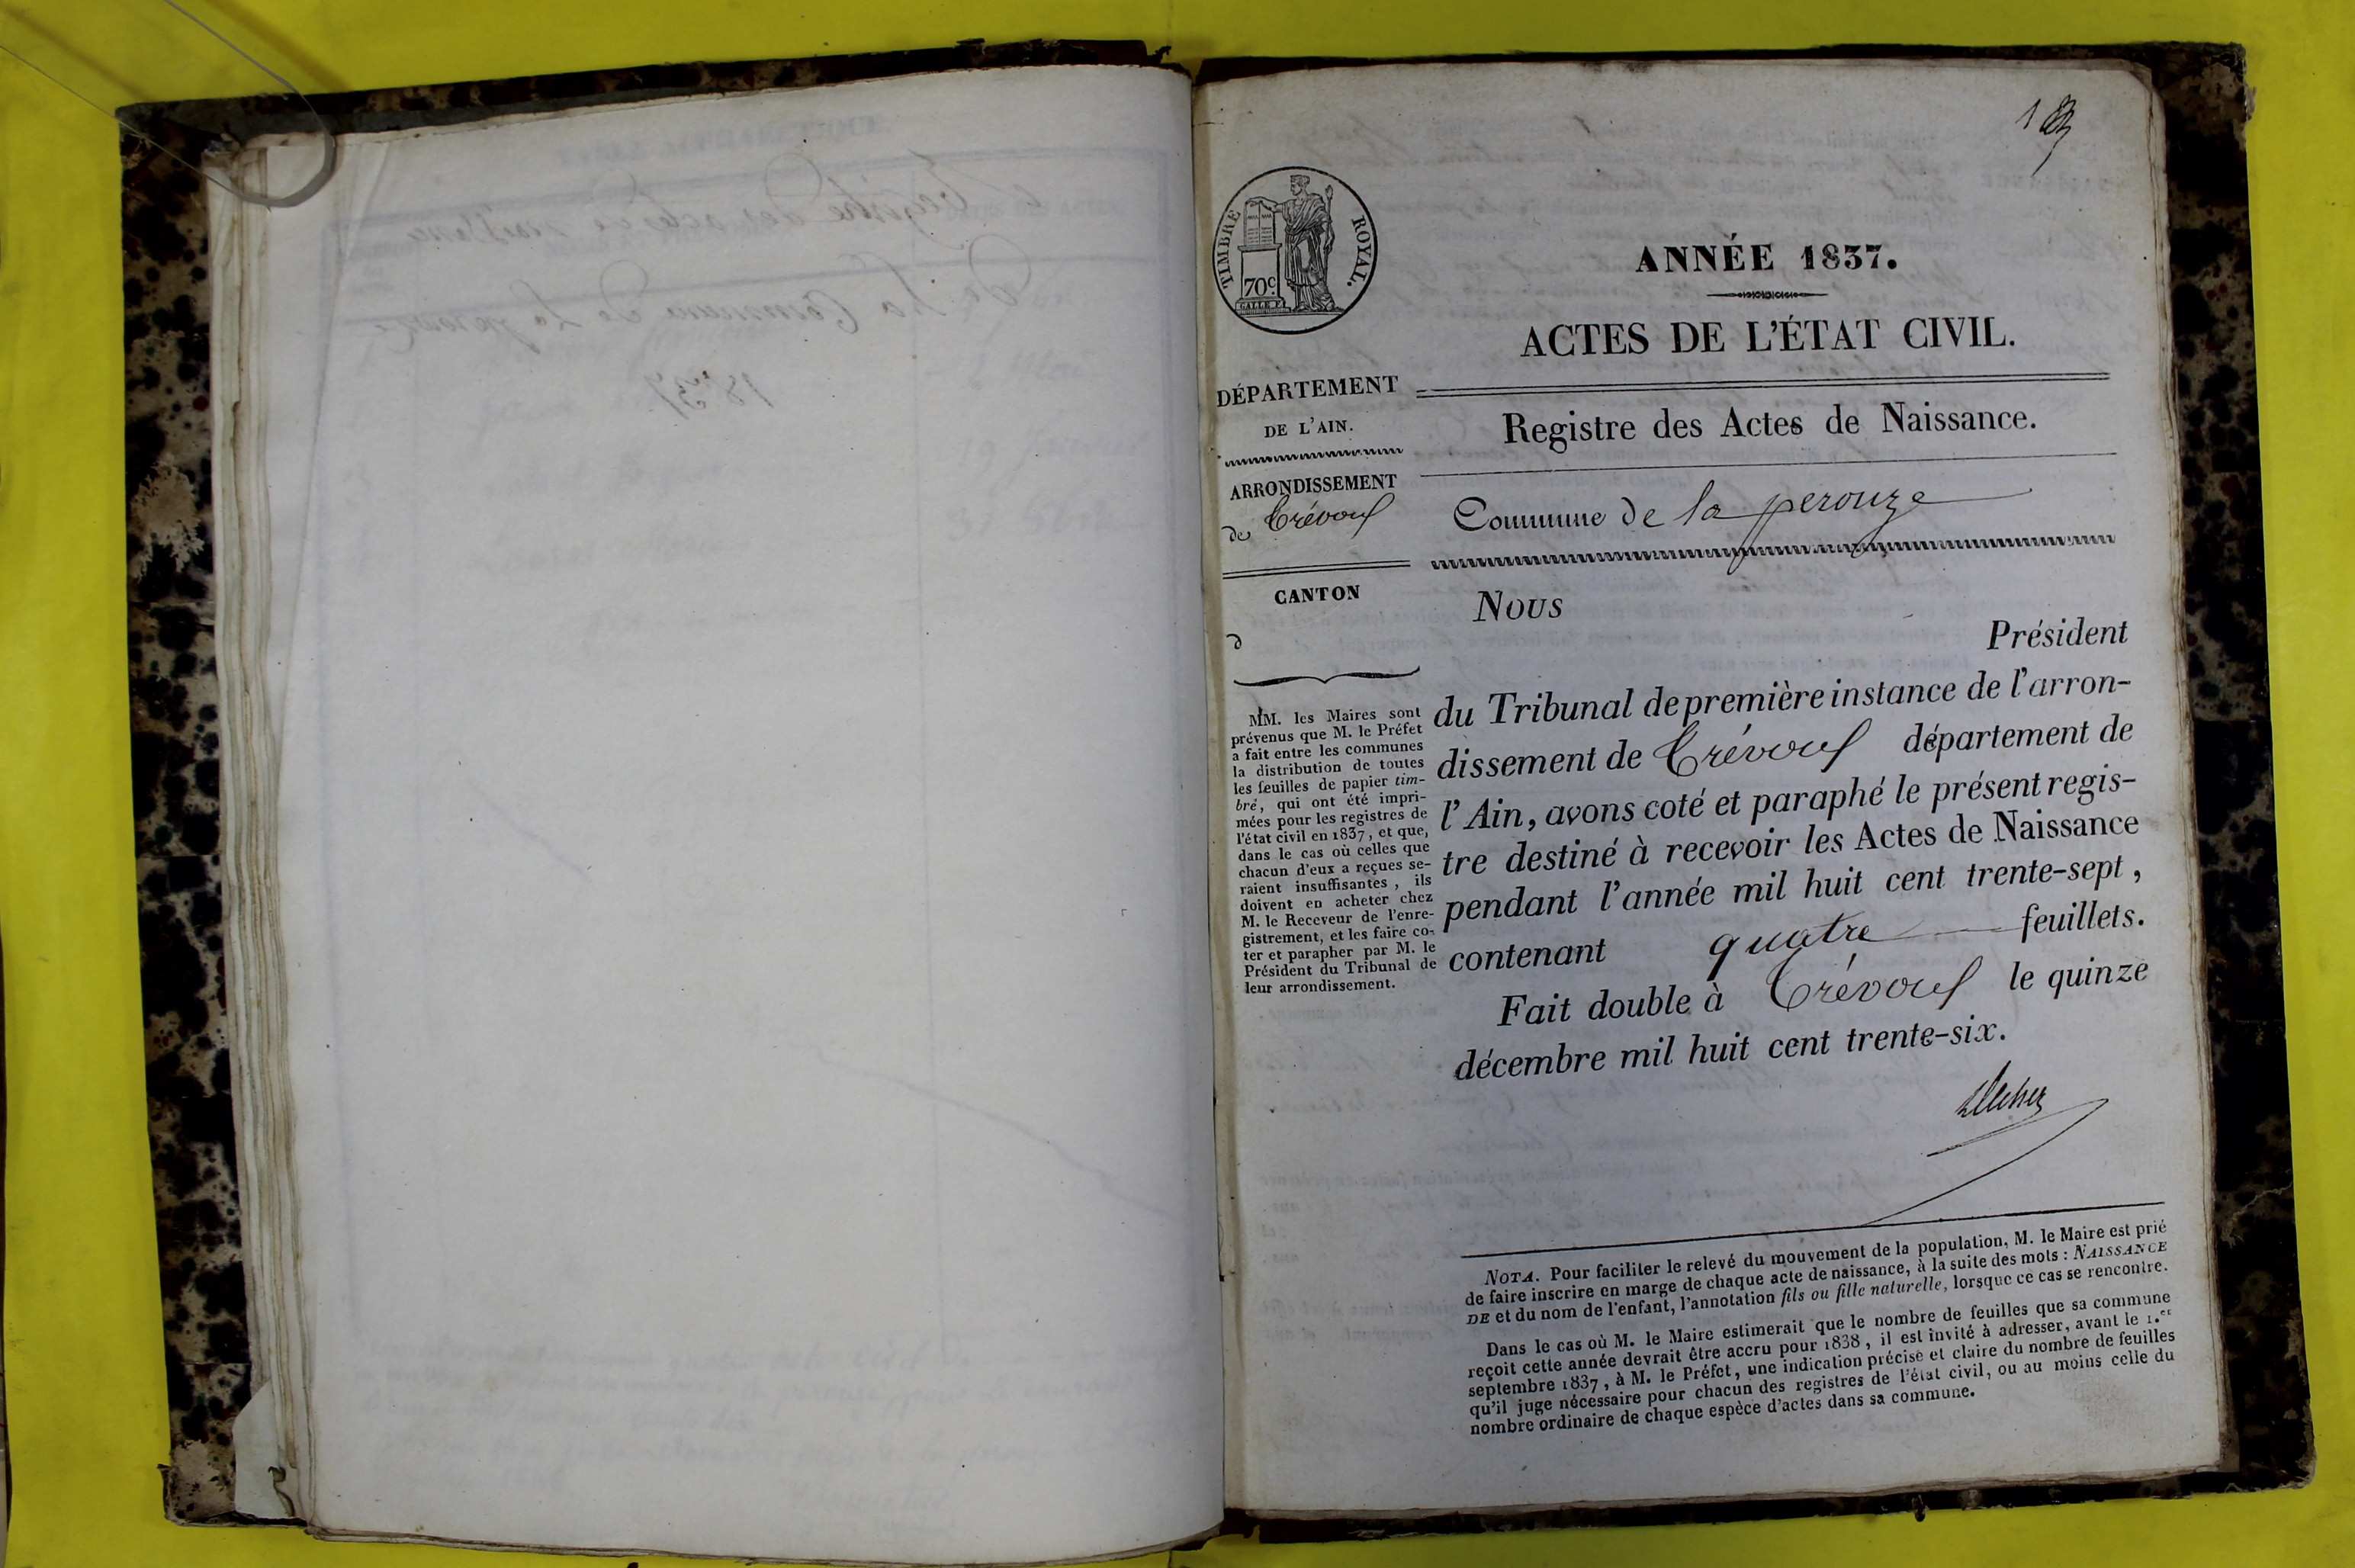 TIMBRE ROYAL.
70c.
GALLE F.
ANNÉE 1837.
ACTES DE L'ÉTAT CIVIL.
DÉPARTEMENT
DE L'AIN.
ARRONDISSEMENT
de Trévoux
CANTON
d
MM. les Maires sont
prévenus que M. le Préfet
a fait entre les communes
la distribution de toutes
les feuilles de papier tim-
bré, qui ont été impri-
mées pour les registres de
l'état civil en 1837, et que,
dans le cas où celles que
chacun d'eux a reçues se-
raient insuffisantes, ils
doivent en acheter chez
M. le Receveur de l'enre-
gistrement, et les faire co-
ter et parapher par M. le
Président du Tribunal de
leur arrondissement.
Registre des Actes de Naissance.
Commune de la perouze
Nous
Président
du Tribunal de première instance de l'arron-
dissement de Trévoux département de
l'Ain, avons coté et paraphé le présent regis-
tre destiné à recevoir les Actes de Naissance
pendant l'année mil huit cent trente-sept,
contenant quatre feuillets.
Fait double à Trévoux le quinze
décembre mil huit cent trente-six.
NOTA. Pour faciliter le relevé du mouvement de la population, M. le Maire est prié
de faire inscrire en marge de chaque acte de naissance, à la suite des mots : NAISSANCE
DE et du nom de l'enfant, l'annotation fils ou fille naturelle, lorsque ce cas se rencontre.
Dans le cas où M. le Maire estimerait que le nombre de feuilles que sa commune
reçoit cette année devrait être accru pour 1838, il est invité à adresser, avant le 1.er
septembre 1837, à M. le Préfet, une indication précise et claire du nombre de feuilles
qu'il juge nécessaire pour chacun des registres de l'état civil, ou au moins celle du
nombre ordinaire de chaque espèce d'actes dans sa commune.